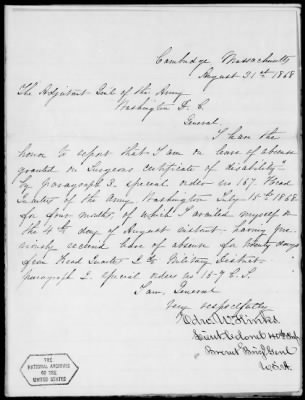 Cambridge Massachusetts
August 31st 1868
The Adjutant Genl of the Army
Washington D. C.
General,
I have the
honor to report that I am on leave of absence
granted on Surgeons certificate of disability"
by paragraph 3. Special orders no 167. Head
Quarters of the Army Washington July 15th 1868.
for four months, of which I availed myself on
the 4th day of August instant. having pre-
viously received leave of absence for twenty days
from Head Quarters 2d Military District
paragraph 2. Special orders no 157 C.S.
I am, General
Very respectfully
Edw. W. Hinks
Lieut Colonel 40th Inf
Brevet Brig Genl
U.S.A.
THE NATIONAL ARCHIVES
OF THE
UNITED STATES